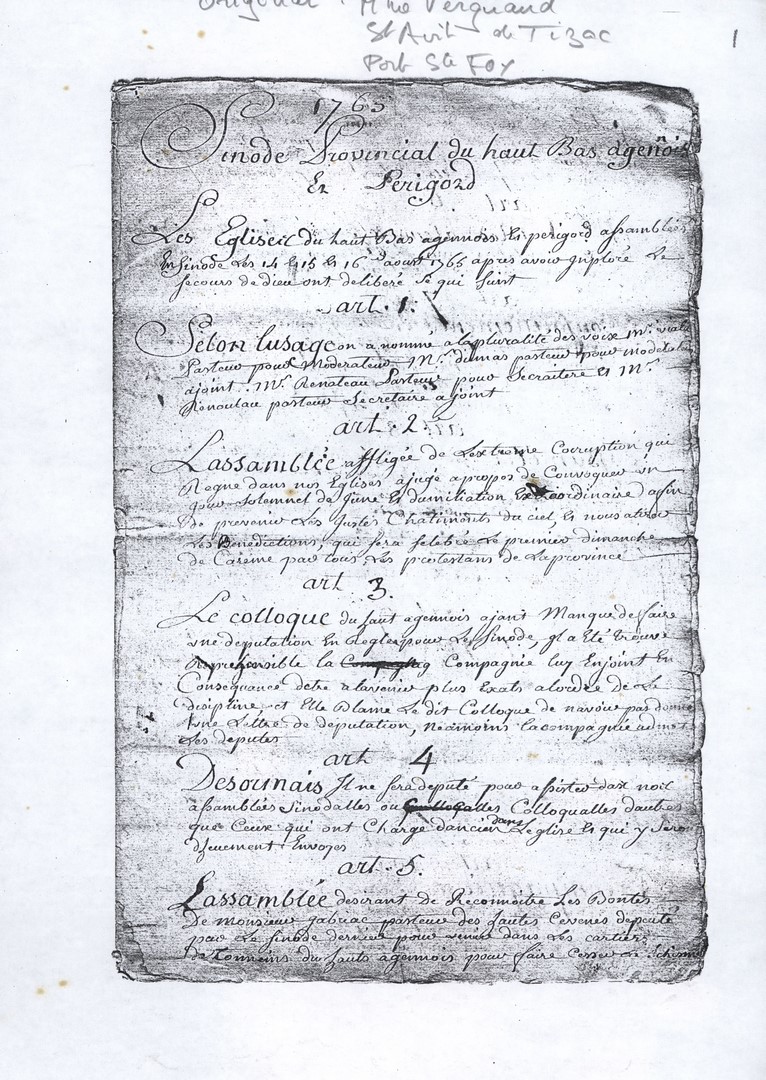 Original : Mme Vergnaud
St Avit de Tizac
Port Ste Foy
1
1765
Sinode Provincial du haut Bas agenois
Et Perigord
Les Eglises du haut Bas agennois Et perigord assamblées
En sinode Les 14 Et 15 Et 16 aoust 1765 apres avoir Jnploré Le
secours de dieu ont deliberé Se qui suit
art. 1.
Selon lusage on a nommé a la pluralité des voix Mr.
Pasteur pour Moderateur Mr. dumas pasteur pour moderateur
ajoint. Mr. Renateau Pasteur pour Secraitere Et Mr.
Renoulau pasteur Secretaire ajoint
art. 2
Lassamblée affligée de Lextreme Corruption qui
Regne dans nos Eglises a jugé a propos de Convoquer un
jour solemnel de june Et dumiliation Extraordinaire affin
de prevenir Les justes Chatiments du ciel, Et nous atirer
Les Benedictions, qui sera selebré Le premier dimanche
de Careme par tous Les protestans de La province
art 3.
Le colloque du haut agennois ajant Manqué de faire
une deputation En Regles pour Le sinode, jl a Eté trouvé
Reprehensible la Compagnie luy Enjoint En
Consequance detre alavenir plus Exats alordre De La
dicipline et Elle Blame Le dit Colloque de navoir pas donné
une Lettre de deputation, neamoins la compagnie admet
Les deputes
art 4
Desormais Jl ne sera deputé pour assister dans nos
assamblées sinodalles ou Colloqualles dautres
que Ceux qui ont Charge dancien dans Leglise Et qui y seron
duement Envoyes
art. 5.
Lassamblée desirant de Reconnoitre Les Bontes
De monsieur gabriac pasteur des hautes Cevenes deputé
par Le sinode dernier pour venir dans Les cartiers
de Tonneins du hauts agennois pour faire Cesser Le Schisme